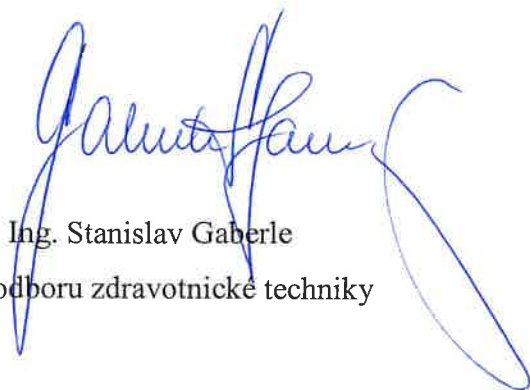 Ing. Stanislav Gaberle
odboru zdravotnické techniky